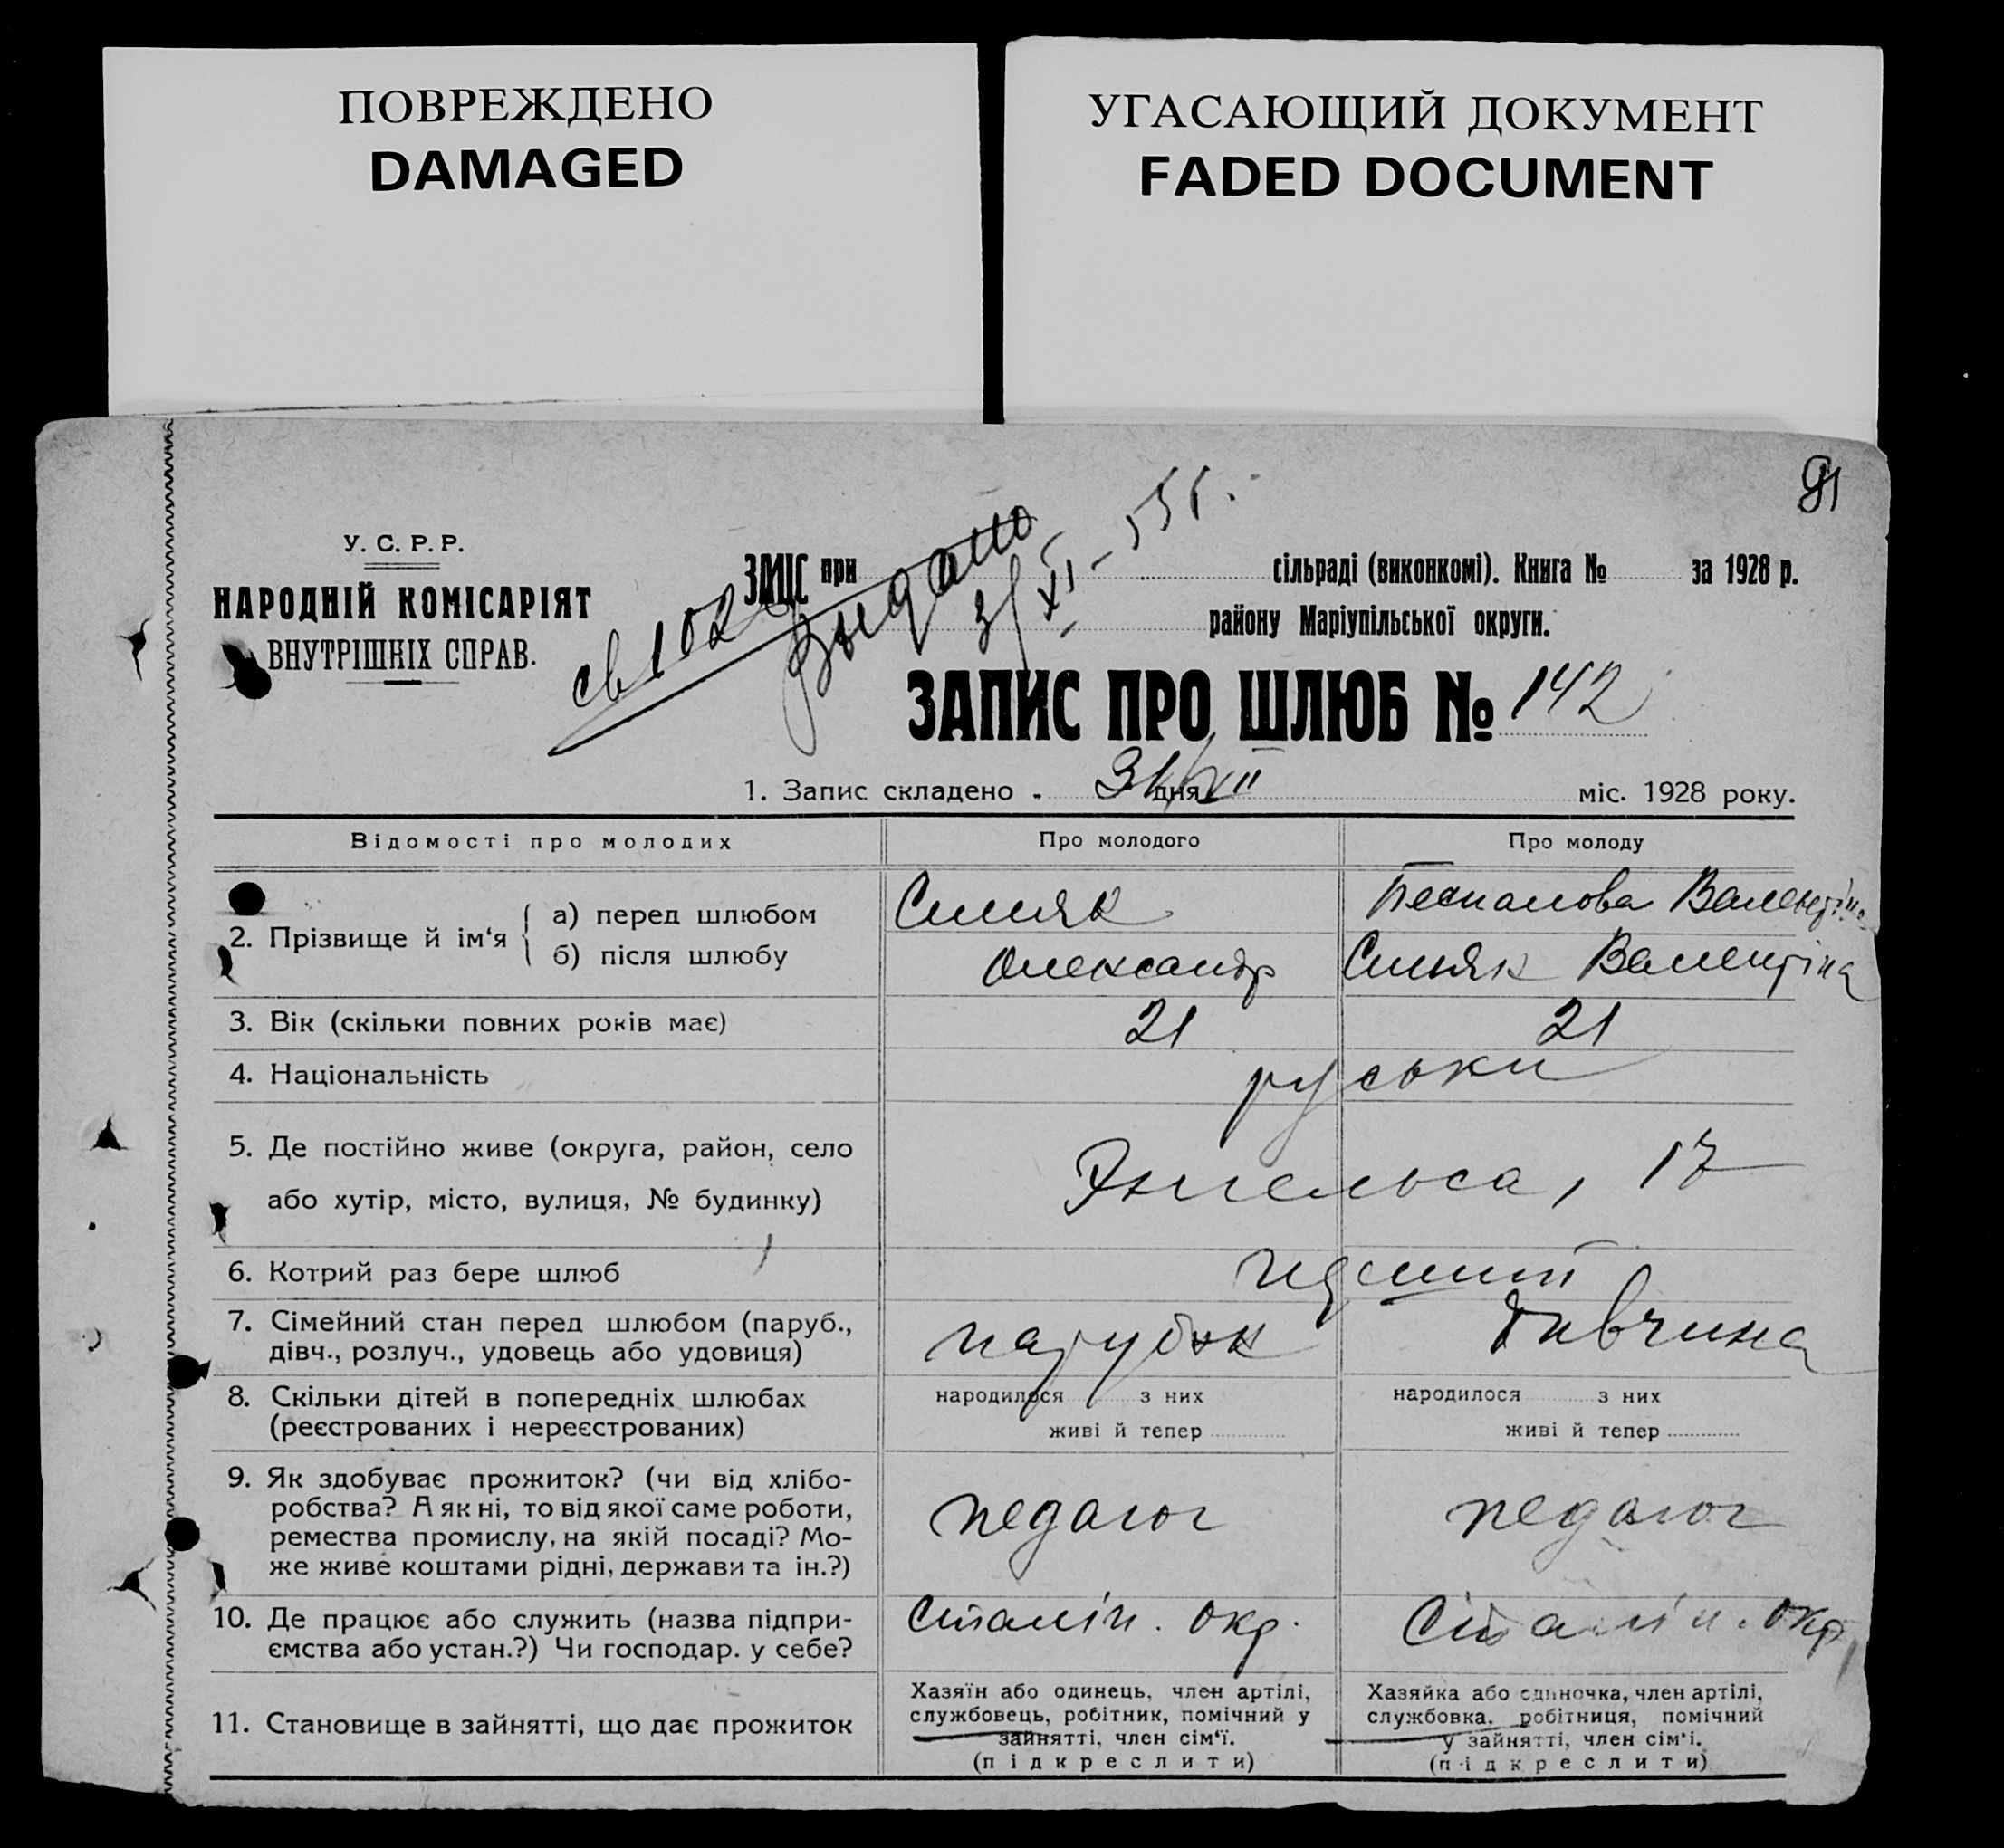 ПОВРЕЖДЕНО
DAMAGED
УГАСАЮЩИЙ ДОКУМЕНТ
FADED DOCUMENT
91
У. С. Р. Р.
НАРОДНІЙ КОМІСАРІЯТ
ВНУТРІШНІХ СПРАВ.
ЗАГС при сільраді (виконкомі). Книга № за 1928 р.
району Маріупільської округи.
св 102
Выдано
3/XI-55г.
ЗАПИС ПРО ШЛЮБ № 142
1. Запис складено 31/XII дня міс. 1928 року.
Відомості про молодих
Про молодого
Про молоду
2. Прізвище й ім‘я { а) перед шлюбом
б) після шлюбу
Синяк
Олександр
Валентіна
Синяк Валентіна
3. Вік (скільки повних років має)
21
21
4. Національність
руськи
5. Де постійно живе (округа, район, село
або хутір, місто, вулиця, № будинку)
Энгельса, 17
6. Котрий раз бере шлюб
7. Сімейний стан перед шлюбом (паруб.,
дівч., розлуч., удовець або удовиця)
парубок
дивчина
8. Скільки дітей в попередніх шлюбах
(реєстрованих і нереєстрованих)
народилося з них
живі й тепер
народилося з них
живі й тепер
9. Як здобуває прожиток? (чи від хлібо-
робства? А як ні, то від якої саме роботи,
ремества промислу, на якій посаді? Мо-
же живе коштами рідні, держави та ін.?)
педагог
педагог
10. Де працює або служить (назва підпри-
ємства або устан.?) Чи господар. у себе?
Сталін. окр.
Сталін. окр.
11. Становище в зайнятті, що дає прожиток
Хазяїн або одинець, член артілі,
службовець, робітник, помічний у
зайнятті, член сім‘ї.
(підкреслити)
Хазяйка або одиночка, член артілі,
службовка, робітниця, помічний
у зайнятті, член сім‘ї.
(підкреслити)